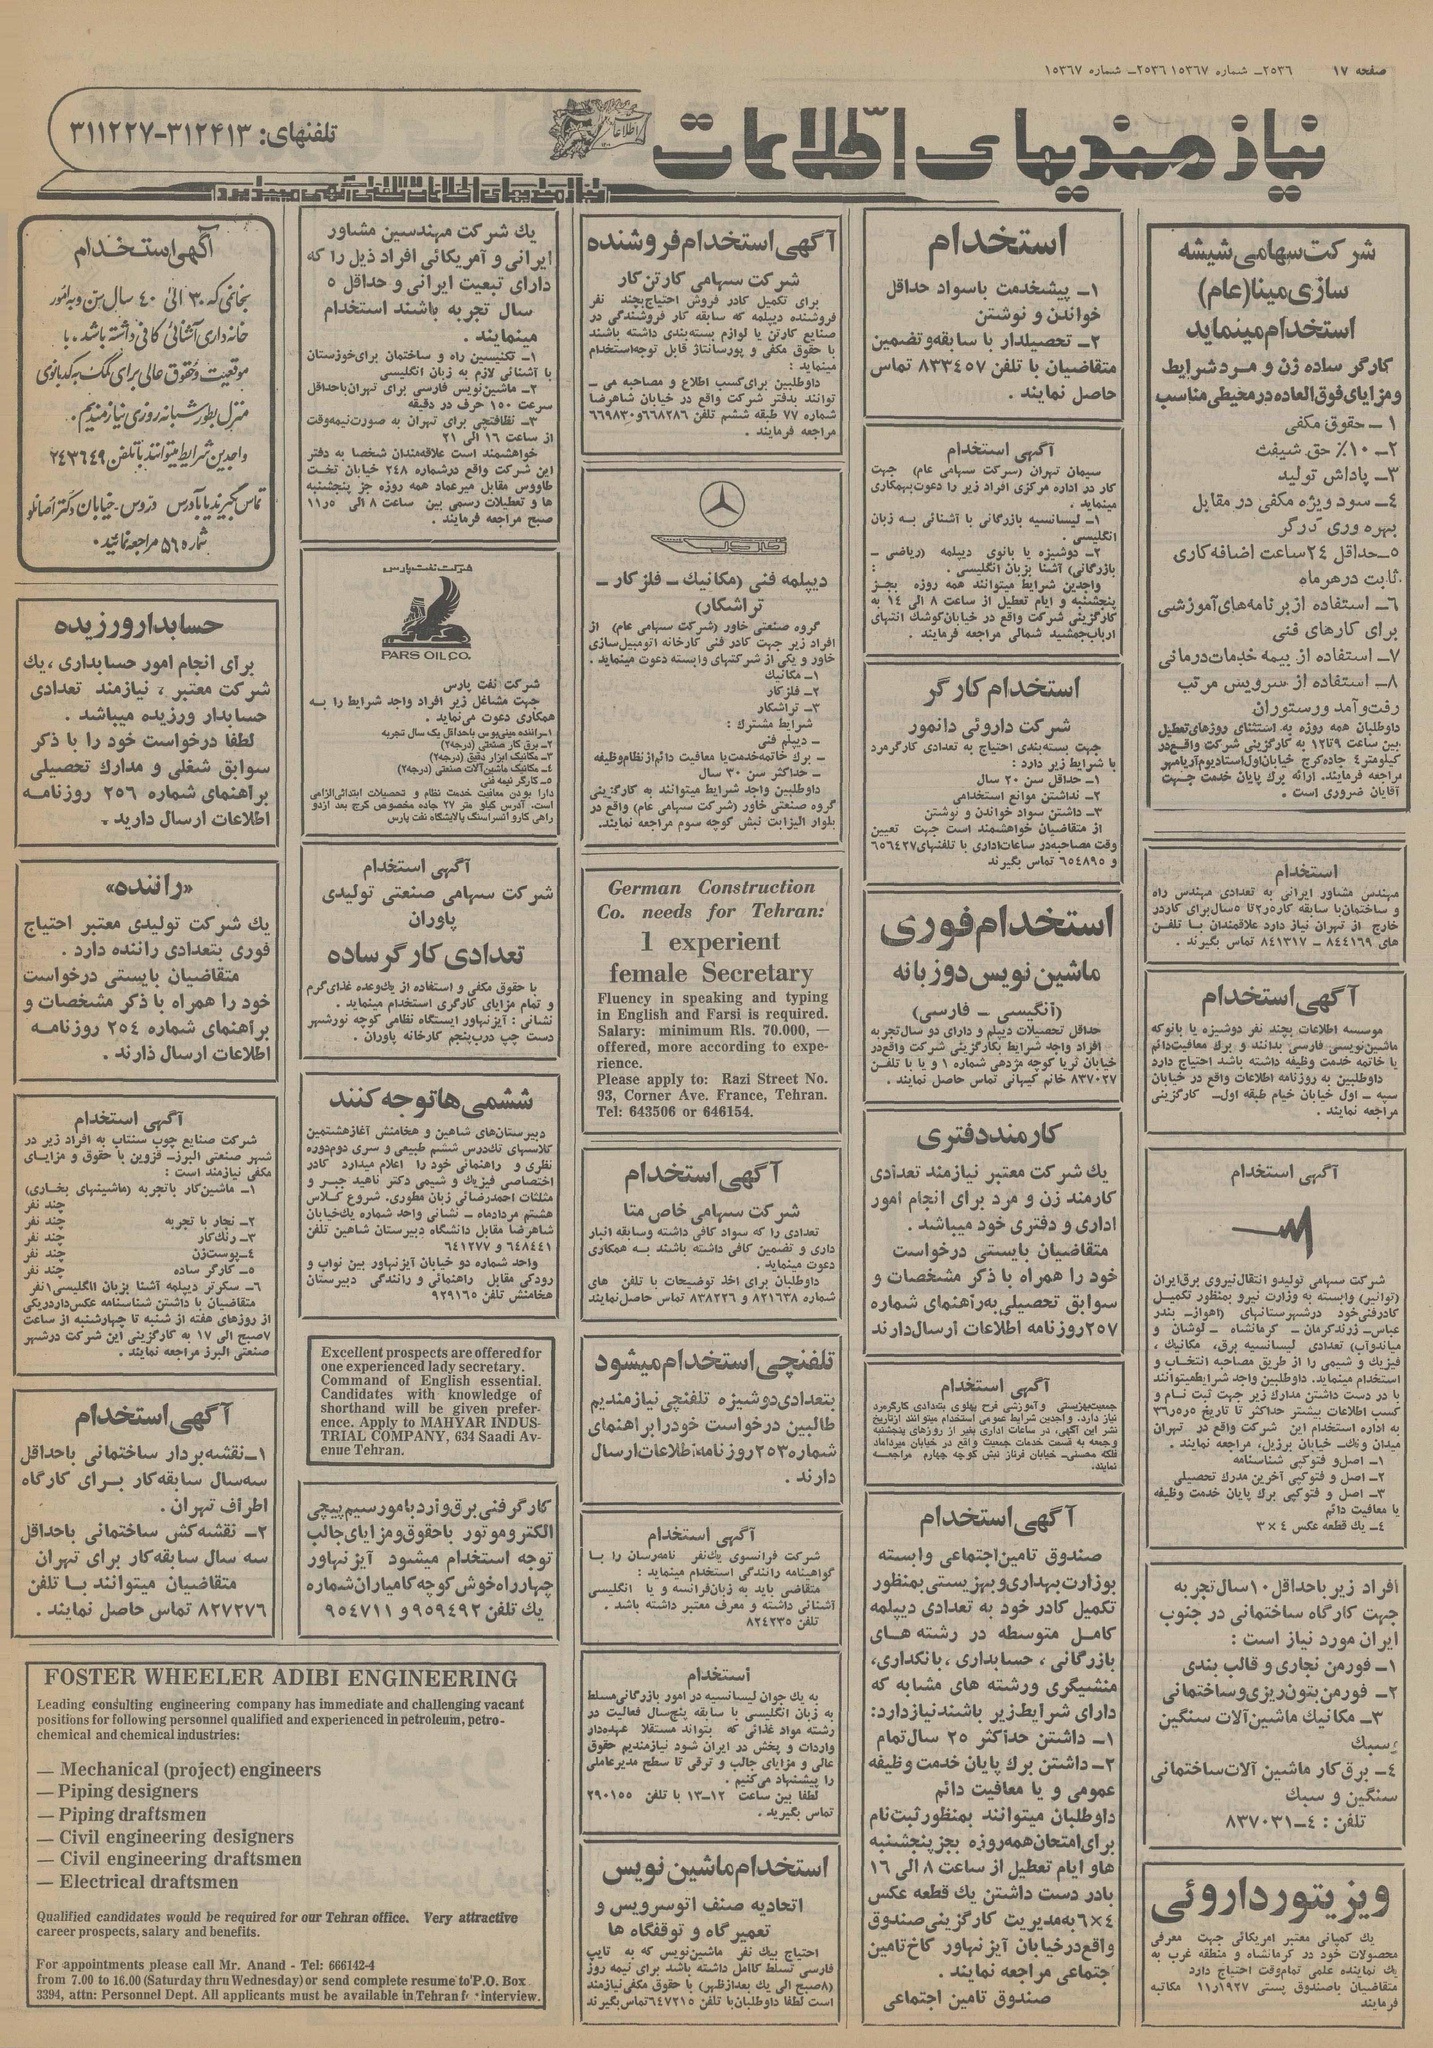 صفحه ۱۷
۲۵۳۶ــ شماره ۱۵۳۶۷ ۲۵۳۶ــ شماره ۱۵۳۶۷
نیازمندیهای اطلاعات
تلفنهای: ۳۱۲۴۱۳-۳۱۱۲۲۷
نیازمندیهای اطلاعات تلفنی آگهی میپذیرد
شرکت سهامی شیشه
سازی مینا (عام)
استخدام مینماید
کارگر ساده زن و مرد شرایط
و مزایای فوق العاده در محیطی مناسب
۱ – حقوق مکفی
۲ــ ۱۰٪ حق شیفت
۳ــ پاداش تولید
۴ــ سود ویژه مکفی در مقابل
بهره وری کارگر
۵ــ حداقل ۲۴ ساعت اضافه کاری
ثابت در هر ماه
۶ــ استفاده از برنامه های آموزشی
برای کارهای فنی
۷ــ استفاده از بیمه خدمات درمانی
۸ــ استفاده از سرویس مرتب
رفت و آمد و رستوران
داوطلبان همه روزه به استثنای روزهای تعطیل
بین ساعت ۹ تا ۱۲ به کارگزینی شرکت واقع در
کیلومتر ۴ جاده کرج خیابان اول استادیوم آریامهر
مراجعه فرمایند. ارائه برگ پایان خدمت جهت
آقایان ضروری است .
استخدام
مهندس مشاور ایرانی به تعدادی مهندس راه
و ساختمان با سابقه کار ۲ تا ۵ سال برای کار در
خارج از تهران نیاز دارد علاقمندان با تلفن
های ۸۴۴۱۶۹ – ۸۴۱۳۱۷ تماس بگیرند .
آگهی استخدام
موسسه اطلاعات بچند نفر دوشیزه یا بانو که
ماشین نویسی فارسی بدانند و برگ معافیت دائم
یا خاتمه خدمت وظیفه داشته باشد احتیاج دارد
داوطلبین به روزنامه اطلاعات واقع در خیابان
سپه – اول خیابان خیام طبقه اول– کارگزینی
مراجعه نمایند .
آگهی استخدام
شرکت سهامی تولید و انتقال نیروی برق ایران
(توانیر) وابسته به وزارت نیرو بمنظور تکمیل
کادر فنی خود در شهرستانهای (اهواز– بندر
عباس– زرند کرمان – کرمانشاه – لوشان و
میاندوآب) تعدادی لیسانسیه برق، مکانیک،
فیزیک و شیمی را از طریق مصاحبه انتخاب و
استخدام مینماید. داوطلبین واجد شرایط میتوانند
با در دست داشتن مدارک زیر جهت ثبت نام و
کسب اطلاعات بیشتر حداکثر تا تاریخ ۳۶ر۵ر۵
به اداره استخدام این شرکت واقع در تهران
میدان ونک– خیابان برزیل، مراجعه نمایند .
۱ــ اصل و فتوکپی شناسنامه
۲ــ اصل و فتوکپی آخرین مدرک تحصیلی
۳ــ اصل و فتوکپی برگ پایان خدمت وظیفه
یا معافیت دائم
۴ــ یک قطعه عکس ۴ × ۳
افراد زیر با حداقل ۱۰ سال تجربه
جهت کارگاه ساختمانی در جنوب
ایران مورد نیاز است :
۱ــ فورمن نجاری و قالب بندی
۲ــ فورمن بتون ریزی و ساختمانی
۳ــ مکانیک ماشین آلات سنگین
و سبک
۴ــ برق کار ماشین آلات ساختمانی
سنگین و سبک
تلفن : ۴–۸۳۷۰۳۱
ویزیتور داروئی
یک کمپانی معتبر امریکائی جهت معرفی
محصولات خود در کرمانشاه و منطقه غرب به
یک نماینده علمی تمام وقت احتیاج دارد
متقاضیان با صندوق پستی ۱۹۲۷ر۱۱ مکاتبه
فرمایند
استخدام
۱ــ پیشخدمت با سواد حداقل
خواندن و نوشتن
۲ــ تحصیلدار با سابقه و تضمین
متقاضیان با تلفن ۸۳۳۴۵۷ تماس
حاصل نمایند .
آگهی استخدام
سیمان تهران (شرکت سهامی عام) جهت
کار در اداره مرکزی افراد زیر را دعوت بهمکاری
مینماید .
۱ــ لیسانسیه بازرگانی با آشنائی به زبان
انگلیسی .
۲ــ دوشیزه یا بانوی دیپلمه (ریاضی –
بازرگانی) آشنا بزبان انگلیسی . :
واجدین شرایط میتوانند همه روزه بجز
پنجشنبه و ایام تعطیل از ساعت ۸ الی ۱۴ به
کارگزینی شرکت واقع در خیابان کوشک انتهای
ارباب جمشید شمالی مراجعه فرمایند .
استخدام کارگر
شرکت داروئی دانمور
جهت بسته بندی احتیاج به تعدادی کارگر مرد
با شرایط زیر دارد :
۱ــ حداقل سن ۲۰ سال
۲ــ نداشتن موانع استخدامی
۳ــ داشتن سواد خواندن و نوشتن
از متقاضیان خواهشمند است جهت تعیین
وقت مصاحبه در ساعات اداری با تلفنهای ۶۵۶۴۲۷
و ۶۵۴۸۹۵ تماس بگیرند
استخدام فوری
ماشین نویس دوزبانه
(انگیسی – فارسی)
حداقل تحصیلات دیپلم و دارای دو سال تجربه
افراد واجد شرایط بکارگزینی شرکت واقع در
خیابان ثریا کوچه مژدهی شماره ۱ و یا با تلفن
۸۳۷۰۲۷ خانم کیهانی تماس حاصل نمایند .
کارمند دفتری
یک شرکت معتبر نیازمند تعدادی
کارمند زن و مرد برای انجام امور
اداری و دفتری خود میباشد .
متقاضیان بایستی درخواست
خود را همراه با ذکر مشخصات و
سوابق تحصیلی به راهنمای شماره
۲۵۷ روزنامه اطلاعات ارسال دارند
آگهی استخدام
جمعیت بهزیستی و آموزشی فرح پهلوی به تعدادی کارگر مرد
نیاز دارد. واجدین شرایط عمومی استخدام میتوانند از تاریخ
نشر این آگهی، در ساعات اداری بغیر از روزهای پنجشنبه
و جمعه به قسمت خدمات جمعیت واقع در خیابان میرداماد
فلکه محسنی– خیابان فرناز نبش کوچه چهارم مراجعه
نمایند.
آگهی استخدام
صندوق تامین اجتماعی وابسته
بوزارت بهداری و بهزیستی بمنظور
تکمیل کادر خود به تعدادی دیپلمه
کامل متوسطه در رشته های
بازرگانی ، حسابداری ، بانکداری،
منشیگری و رشته های مشابه که
دارای شرایط زیر باشند نیاز دارد:
۱ــ داشتن حداکثر ۲۵ سال تمام
۲ــ داشتن برگ پایان خدمت وظیفه
عمومی و یا معافیت دائم
داوطلبان میتوانند بمنظور ثبت نام
برای امتحان همه روزه بجز پنجشنبه
ها و ایام تعطیل از ساعت ۸ الی ۱۶
با در دست داشتن یک قطعه عکس
۶×۴ به مدیریت کارگزینی صندوق
واقع در خیابان آیزنهاور کاخ تامین
اجتماعی مراجعه نمایند .
صندوق تامین اجتماعی
آگهی استخدام فروشنده
شرکت سهامی کارتن کار
برای تکمیل کادر فروش احتیاج بچند نفر
فروشنده دیپلمه که سابقه کار فروشندگی در
صنایع کارتن یا لوازم بسته بندی داشته باشند
با حقوق مکفی و پورسانتاژ قابل توجه استخدام
مینماید :
داوطلبین برای کسب اطلاع و مصاحبه می –
توانند بدفتر شرکت واقع در خیابان شاهرضا
شماره ۷۷ طبقه ششم تلفن ۶۶۸۲۸۶ و ۶۶۹۸۳۰
مراجعه فرمایند .
خاور
دیپلمه فنی (مکانیک – فلز کار –
تراشکار)
گروه صنعتی خاور (شرکت سهامی عام) از
افراد زیر جهت کادر فنی کارخانه اتومبیل سازی
خاور و یکی از شرکتهای وابسته دعوت مینماید .
۱ــ مکانیک
۲ــ فلز کار
۳ــ تراشکار
شرایط مشترک :
ــ دیپلم فنی
ــ برگ خاتمه خدمت یا معافیت دائم از نظام وظیفه
ــ حداکثر سن ۳۰ سال
داوطلبین واجد شرایط میتوانند به کارگزینی
گروه صنعتی خاور (شرکت سهامی عام) واقع در
بلوار الیزابت نبش کوچه سوم مراجعه نمایند.
German Construction
Co. needs for Tehran:
1 experient
female Secretary
Fluency in speaking and typing
in English and Farsi is required.
Salary: minimum Rls. 70.000, —
offered, more according to expe-
rience.
Please apply to: Razi Street No.
93, Corner Ave. France, Tehran.
Tel: 643506 or 646154.
آگهی استخدام
شرکت سهامی خاص متا
تعدادی را که سواد کافی داشته و سابقه انبار
داری و تضمین کافی داشته باشند به همکاری
دعوت مینماید .
داوطلبان برای اخذ توضیحات با تلفن های
شماره ۸۲۱۶۳۸ و ۸۳۸۲۲۶ تماس حاصل نمایند
تلفنچی استخدام میشود
بتعدادی دوشیزه تلفنچی نیازمندیم
طالبین درخواست خود را براهنمای
شماره ۲۵۳ روزنامه اطلاعات ارسال
دارند .
آگهی استخدام
شرکت فرانسوی یک نفر نامه رسان را با
گواهینامه رانندگی استخدام مینماید :
متقاضی باید به زبان فرانسه و یا انگلیسی
آشنائی داشته و معرف معتبر داشته باشد .
تلفن ۸۲۴۲۳۵
استخدام
به یک جوان لیسانسیه در امور بازرگانی مسلط
به زبان انگلیسی با سابقه پنج سال فعالیت در
رشته مواد غذائی که بتواند مستقلا عهده دار
واردات و پخش در ایران شود نیازمندیم حقوق
عالی و مزایای جالب و ترقی تا سطح مدیر عاملی
را پیشنهاد می کنیم .
لطفا بین ساعت ۱۲–۱۳ با تلفن ۲۹۰۱۵۵
تماس بگیرید .
استخدام ماشین نویس
اتحادیه صنف اتوسرویس و
تعمیرگاه و توقفگاه ها
احتیاج بیک نفر ماشین نویس که به تایپ
فارسی تسلط کامل داشته باشد برای نیمه روز
(۸ صبح الی یک بعد از ظهر) با حقوق مکفی نیازمند
است لطفا داوطلبان با تلفن ۶۴۷۲۱۵ تماس بگیرند
یک شرکت مهندسین مشاور
ایرانی و آمریکائی افراد ذیل را که
دارای تبعیت ایرانی و حداقل ۵
سال تجربه باشند استخدام
مینمایند .
۱ــ تکنسین راه و ساختمان برای خوزستان
با آشنائی لازم به زبان انگلیسی
۲ــ ماشین نویس فارسی برای تهران با حداقل
سرعت ۱۵۰ حرف در دقیقه
۳ــ نظافتچی برای تهران به صورت نیمه وقت
از ساعت ۱۶ الی ۲۱
خواهشمند است علاقه مندان شخصا به دفتر
این شرکت واقع در شماره ۲۴۸ خیابان تخت
طاووس مقابل میرعماد همه روزه جز پنجشنبه
ها و تعطیلات رسمی بین ساعت ۸ الی ۵ر۱۱
صبح مراجعه فرمایند .
شرکت نفت پارس
PARS OIL CO.
شرکت نفت پارس
جهت مشاغل زیر افراد واجد شرایط را به
همکاری دعوت می نماید .
۱ــ راننده مینی بوس با حداقل یک سال تجربه
۲ــ برق کار صنعتی (درجه ۲)
۳ــ مکانیک ابزار دقیق (درجه ۲)
۴ــ مکانیک ماشین آلات صنعتی (درجه ۲)
۵ــ کارگر نیمه فنی
دارا بودن معافیت خدمت نظام و تحصیلات ابتدائی الزامی
است. آدرس کیلو متر ۲۷ جاده مخصوص کرج بعد از دو
راهی کارو آنسر اسنگ پالایشگاه نفت پارس
آگهی استخدام
شرکت سهامی صنعتی تولیدی
پاوران
تعدادی کارگر ساده
با حقوق مکفی و استفاده از یک وعده غذای گرم
و تمام مزایای کارگری استخدام مینماید .
نشانی : آیزنهاور ایستگاه نظامی کوچه نورشهر
دست چپ درب پنجم کارخانه پاوران .
ششمی ها توجه کنند
دبیرستان های شاهین و هخامنش آغاز هشتمین
کلاسهای تک درس ششم طبیعی و سری دوم دوره
نظری و راهنمائی خود را اعلام میدارد کادر
اختصاصی فیزیک و شیمی دکتر ناهید جبر و
مثلثات احمد رضائی زبان مطوری. شروع کلاس
هشتم مرداد ماه – نشانی واحد شماره یک خیابان
شاهرضا مقابل دانشگاه دبیرستان شاهین تلفن
۶۴۸۴۴۱ و ۶۴۱۲۷۷
واحد شماره دو خیابان آیزنهاور بین نواب و
رودکی مقابل راهنمائی و رانندگی دبیرستان
هخامنش تلفن ۹۲۹۱۶۵
Excellent prospects are offered for
one experienced lady secretary.
Command of English essential.
Candidates with knowledge of
shorthand will be given prefer-
ence. Apply to MAHYAR INDUS-
TRIAL COMPANY, 634 Saadi Av-
enue Tehran.
کارگر فنی برق وارد بامور سیم پیچی
الکتروموتور با حقوق و مزایای جالب
توجه استخدام میشود آیزنهاور
چهارراه خوش کوچه کامیاران شماره
یک تلفن ۹۵۹۴۹۲ و ۹۵۴۷۱۱
آگهی استخدام
بخانمی که ۳۰ الی ۴۰ سال سن و به امور
خانه داری آشنائی کافی داشته باشد . با
موقعیت و حقوق عالی برای کمک به کدبانوی
منزل بطور شبانه روزی نیازمندیم .
واجدین شرایط میتوانند با تلفن ۲۴۳۶۴۹
تماس بگیرند یا بآدرس دروس – خیابان دکتر اصانلو
شماره ۵۶ مراجعه نمائید .
حسابدار ورزیده
برای انجام امور حسابداری ، یک
شرکت معتبر ، نیازمند تعدادی
حسابدار ورزیده میباشد .
لطفا درخواست خود را با ذکر
سوابق شغلی و مدارک تحصیلی
براهنمای شماره ۲۵۶ روزنامه
اطلاعات ارسال دارید .
«راننده»
یک شرکت تولیدی معتبر احتیاج
فوری بتعدادی راننده دارد .
متقاضیان بایستی درخواست
خود را همراه با ذکر مشخصات و
براهنمای شماره ۲۵۴ روزنامه
اطلاعات ارسال دارند .
آگهی استخدام
شرکت صنایع چوب سنتاب به افراد زیر در
شهر صنعتی البرز– قزوین با حقوق و مزایای
مکفی نیازمند است :
۱ــ ماشین کار با تجربه (ماشینهای بخاری)
چند نفر
۲ــ نجار با تجربه چند نفر
۳ــ رنگ کار چند نفر
۴ــ پوست زن چند نفر
۵ــ کارگر ساده چند نفر
۶ــ سکرتر دیپلمه آشنا بزبان انگلیسی ۱ نفر
متقاضیان با داشتن شناسنامه عکس دار در یکی
از روزهای هفته از شنبه تا چهارشنبه از ساعت
۷ صبح الی ۱۷ به کارگزینی این شرکت در شهر
صنعتی البرز مراجعه نمایند .
آگهی استخدام
۱ــ نقشه بردار ساختمانی با حداقل
سه سال سابقه کار برای کارگاه
اطراف تهران .
۲ــ نقشه کش ساختمانی با حداقل
سه سال سابقه کار برای تهران
متقاضیان میتوانند با تلفن
۸۲۷۲۷۶ تماس حاصل نمایند .
FOSTER WHEELER ADIBI ENGINEERING
Leading consulting engineering company has immediate and challenging vacant
positions for following personnel qualified and experienced in petroleum, petro-
chemical and chemical industries:
— Mechanical (project) engineers
— Piping designers
— Piping draftsmen
— Civil engineering designers
— Civil engineering draftsmen
— Electrical draftsmen
Qualified candidates would be required for our Tehran office. Very attractive
career prospects, salary and benefits.
For appointments please call Mr. Anand - Tel: 666142-4
from 7.00 to 16.00 (Saturday thru Wednesday) or send complete resume to P.O. Box
3394, attn: Personnel Dept. All applicants must be available in Tehran interview.